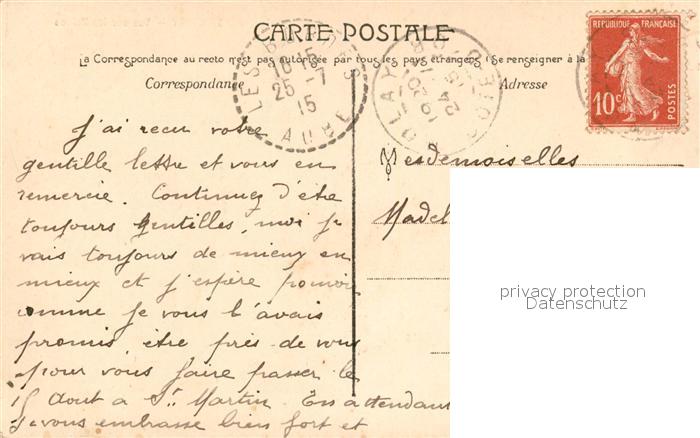 CARTE POSTALE
La Correspondance au recto n'est pas autorisée par tous les pays étrangers (Se renseigner à la
Correspondance
Adresse
RÉPUBLIQUE FRANÇAISE
10c
POSTES
LES
10 15
25 -7
15
AUBE
19 20
24
15
J'ai reçu votre
gentille lettre et vous en
remercie. Continuez d'être
toujours gentilles, moi je
vais toujours de mieux en
mieux et j'espère pouvoir
comme je vous l'avais
promis être près de vous
pour vous faire passer le
15 Aout a St. Martin. En attendant
je vous embrasse bien fort et
Mesdemoiselles
Madel
privacy protection
Datenschutz